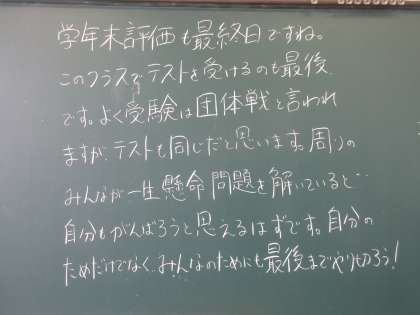 学年末評価も最終日ですね。
このクラスでテストを受けるのも最後
です。よく受験は団体戦と言われ
ますが、テストも同じだと思います。周りの
みんなが一生懸命問題を解いていると…
自分もがんばろうと思えるはずです。自分の
ためだけでなく、みんなのためにも最後までやり切ろう!